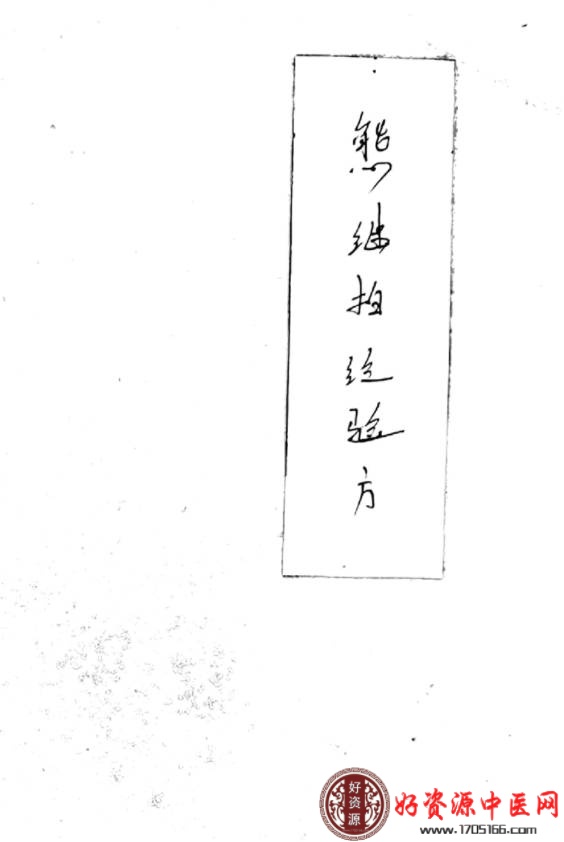 熊继柏经验方
好资源
好资源中医网
www.1705166.com